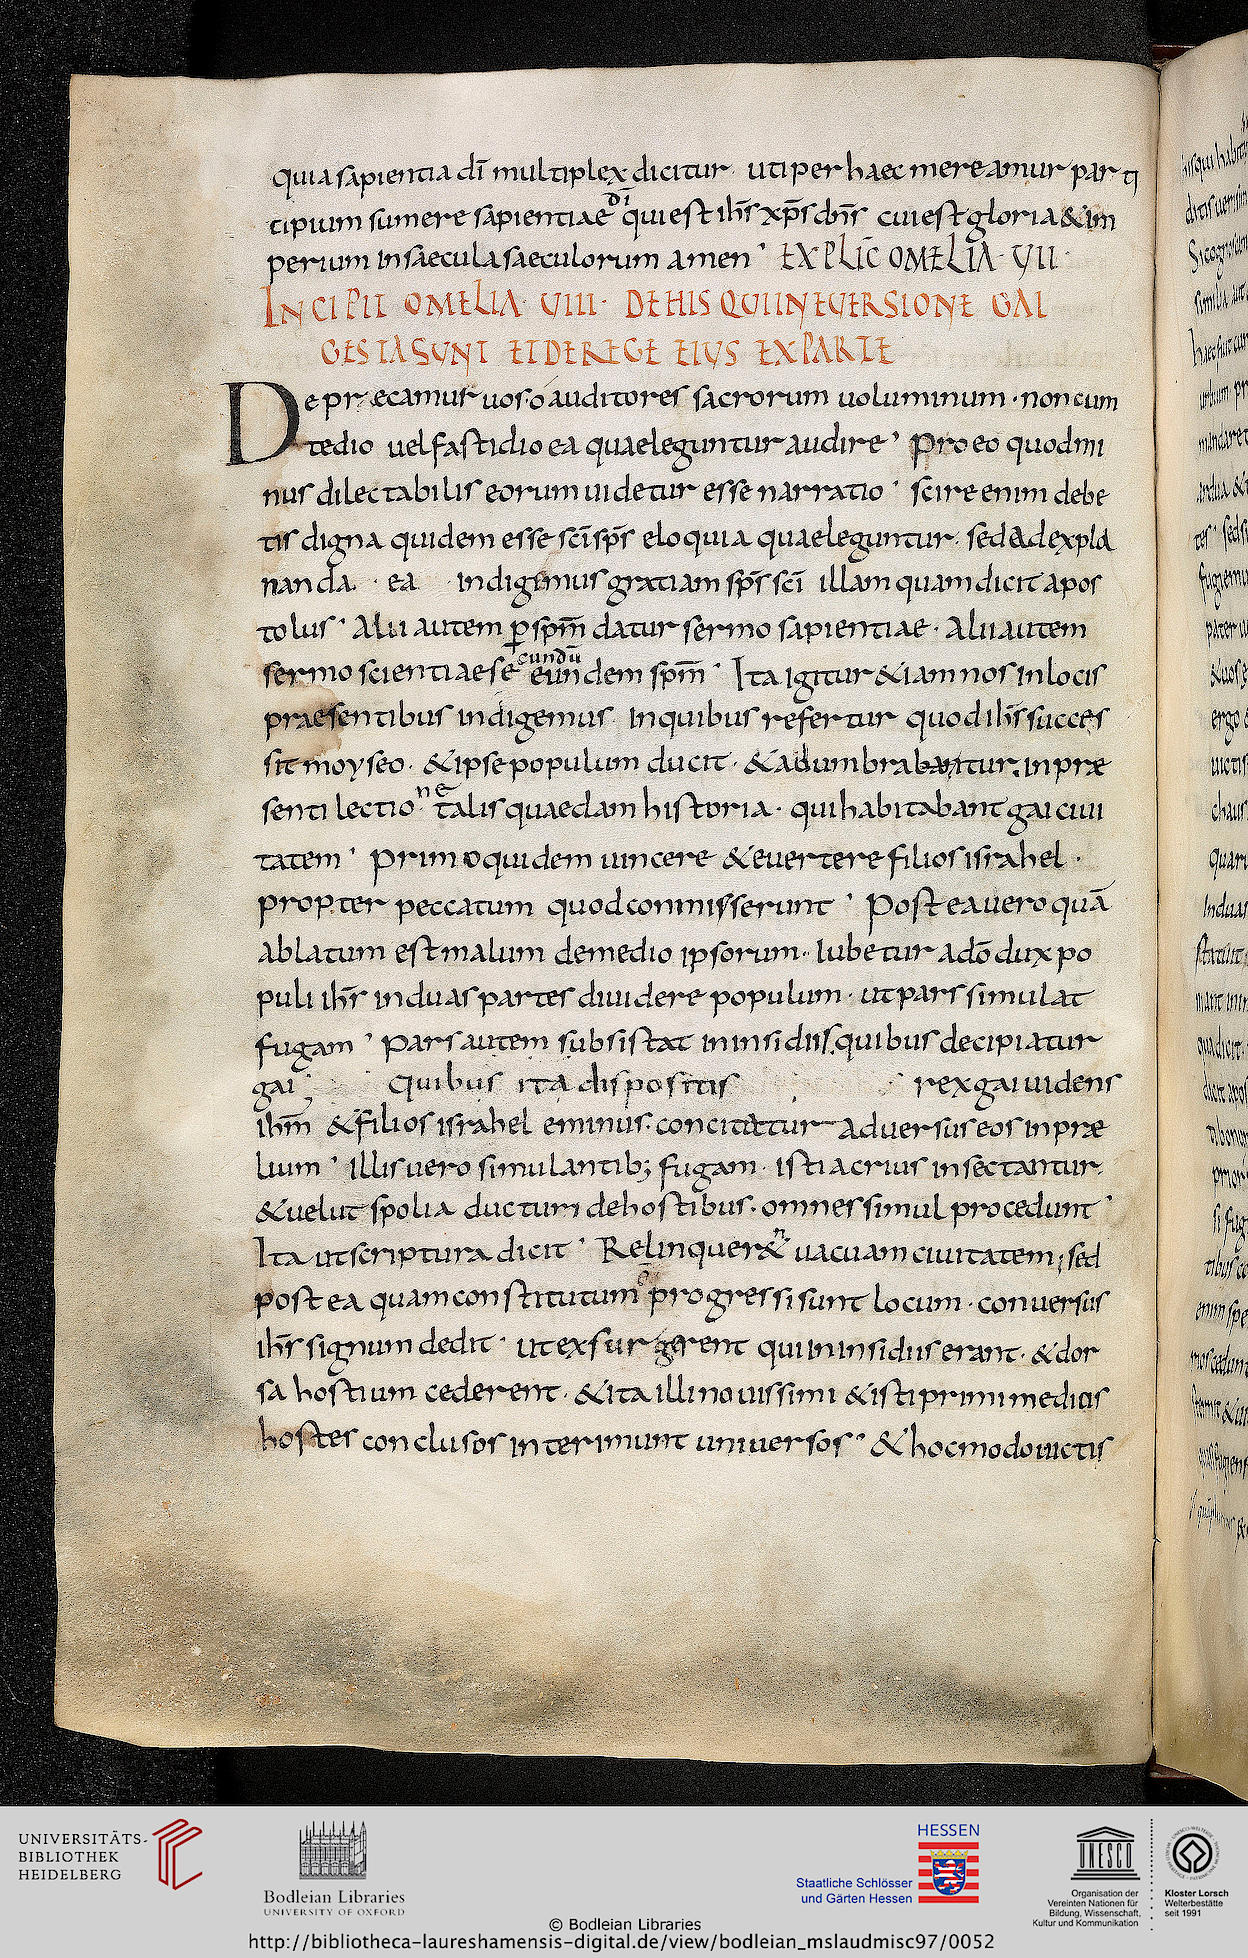 quia sapientia dī multiplex dicitur· uti per haec mereamur par ti
tipium sumere sapientiae dī qui est ihs̄ xp̄s dn̄s cui est gloria & im
perium in saecula saeculorum amen· EXPLIC̄ OMELIA· VII·
INCIPIT OMELIA· VIII· DE HIS QUI IN EVERSIONE GAI
GESTA SUNT ET DE REGE EIUS EX PARTE
Depraecamur uos o auditores sacrorum uoluminum· non cum
tedio uel fastidio ea quae leguntur audire· Pro eo quod mi
nus dilectabilis eorum uidetur esse narratio· scire enim debe
tis digna quidem esse sc̄i sp̄s eloquia quae leguntur· sed ad expla
nanda· ea indigemus gratiam sp̄s sc̄i illam quam dicit apos
tolus· Alii autem ꝑ sp̄m datur sermo sapientiae· Alii autem
sermo scientiae secundū eundem sp̄m· Ita igitur & iam nos in locis
praesentibus indigemus· in quibus refertur quod ihs̄ succes
sit moyseo· & ipse populum ducit· & adumbrabatur· in præ
senti lectione talis quaedam historia· qui habitabant gai ciui
tatem· primo quidem uincere & euertere filios israhel·
propter peccatum quod commisserunt· Post ea uero quā
ablatum est malum de medio ipsorum· Iubetur a dō dux po
puli ihs̄ in duas partes diuidere populum· ut pars simulat
fugam· Pars autem subsistat in insidiis· quibus decipiatur
gai· Quibus ita dispositis rex gai uidens
ihm̄ & filios israhel eminus· concitatur aduersus eos in præ
lium· illis uero simulantib; fugam· isti acrius insectantur·
& uelut spolia ducturi de hostibus· omnes simul procedunt·
Ita ut scriptura dicit· Relinquer&n uacuam ciuitatem; sed
post ea quam constitutum progressi sunt locum· conuersus
ihs̄ signum dedit· ut exsurgerent qui in insidiis erant· & dor
sa hostium cederent· & ita illi nouissimi & isti primi mediis
hostes conclusos interimunt uniuersos· & hoc modo uictis
UNIVERSITÄTS-
BIBLIOTHEK
HEIDELBERG
Bodleian Libraries
UNIVERSITY OF OXFORD
HESSEN
Staatliche Schlösser
und Gärten Hessen
UNESCO
Organisation der
Vereinten Nationen für
Bildung, Wissenschaft,
Kultur und Kommunikation
Kloster Lorsch
Welterbestätte
seit 1991
© Bodleian Libraries
http://bibliotheca-laureshamensis-digital.de/view/bodleian_mslaudmisc97/0052